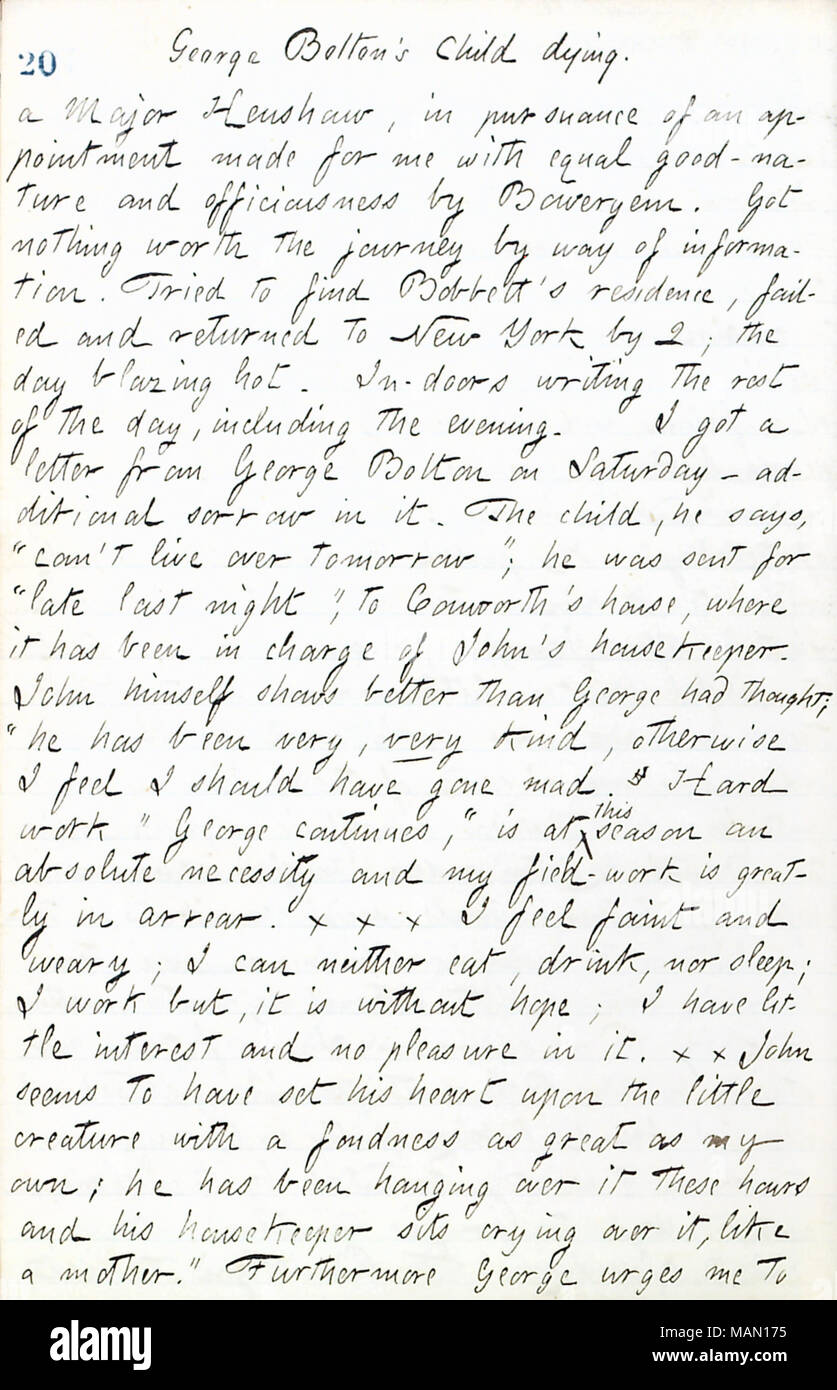 20
George Bolton's Child dying.
a Major Henshaw, in pursuance of an ap-
pointment made for me with equal good-na-
ture and officiousness by Boweryem. Got
nothing worth the journey by way of informa-
tion. Tried to find Bobbett's residence, fail-
ed and returned to New York by 2; the
day blazing hot. In-doors writing the rest
of the day, including the evening. I got a
letter from George Bolton on Saturday - ad-
ditional sorrow in it. The child, he says,
"can't live over tomorrow"; he was sent for
"late last night", to Conworth's house, where
it has been in charge of John's housekeeper.
John himself shows better than George had thought;
"he has been very, very kind, otherwise
I feel I should have gone mad." Hard
work" George continues, "is at this season an
absolute necessity and my field-work is great-
ly in arrear. x x x I feel faint and
weary; I can neither eat, drink, nor sleep;
I work but, it is without hope; I have lit-
tle interest and no pleasure in it. x x John
seems to have set his heart upon the little
creature with a fondness as great as my
own; he has been hanging over it these hours
and his housekeeper sits crying over it, like
a mother." Furthermore George urges me to
alamy
Image ID: MAN175
www.alamy.com